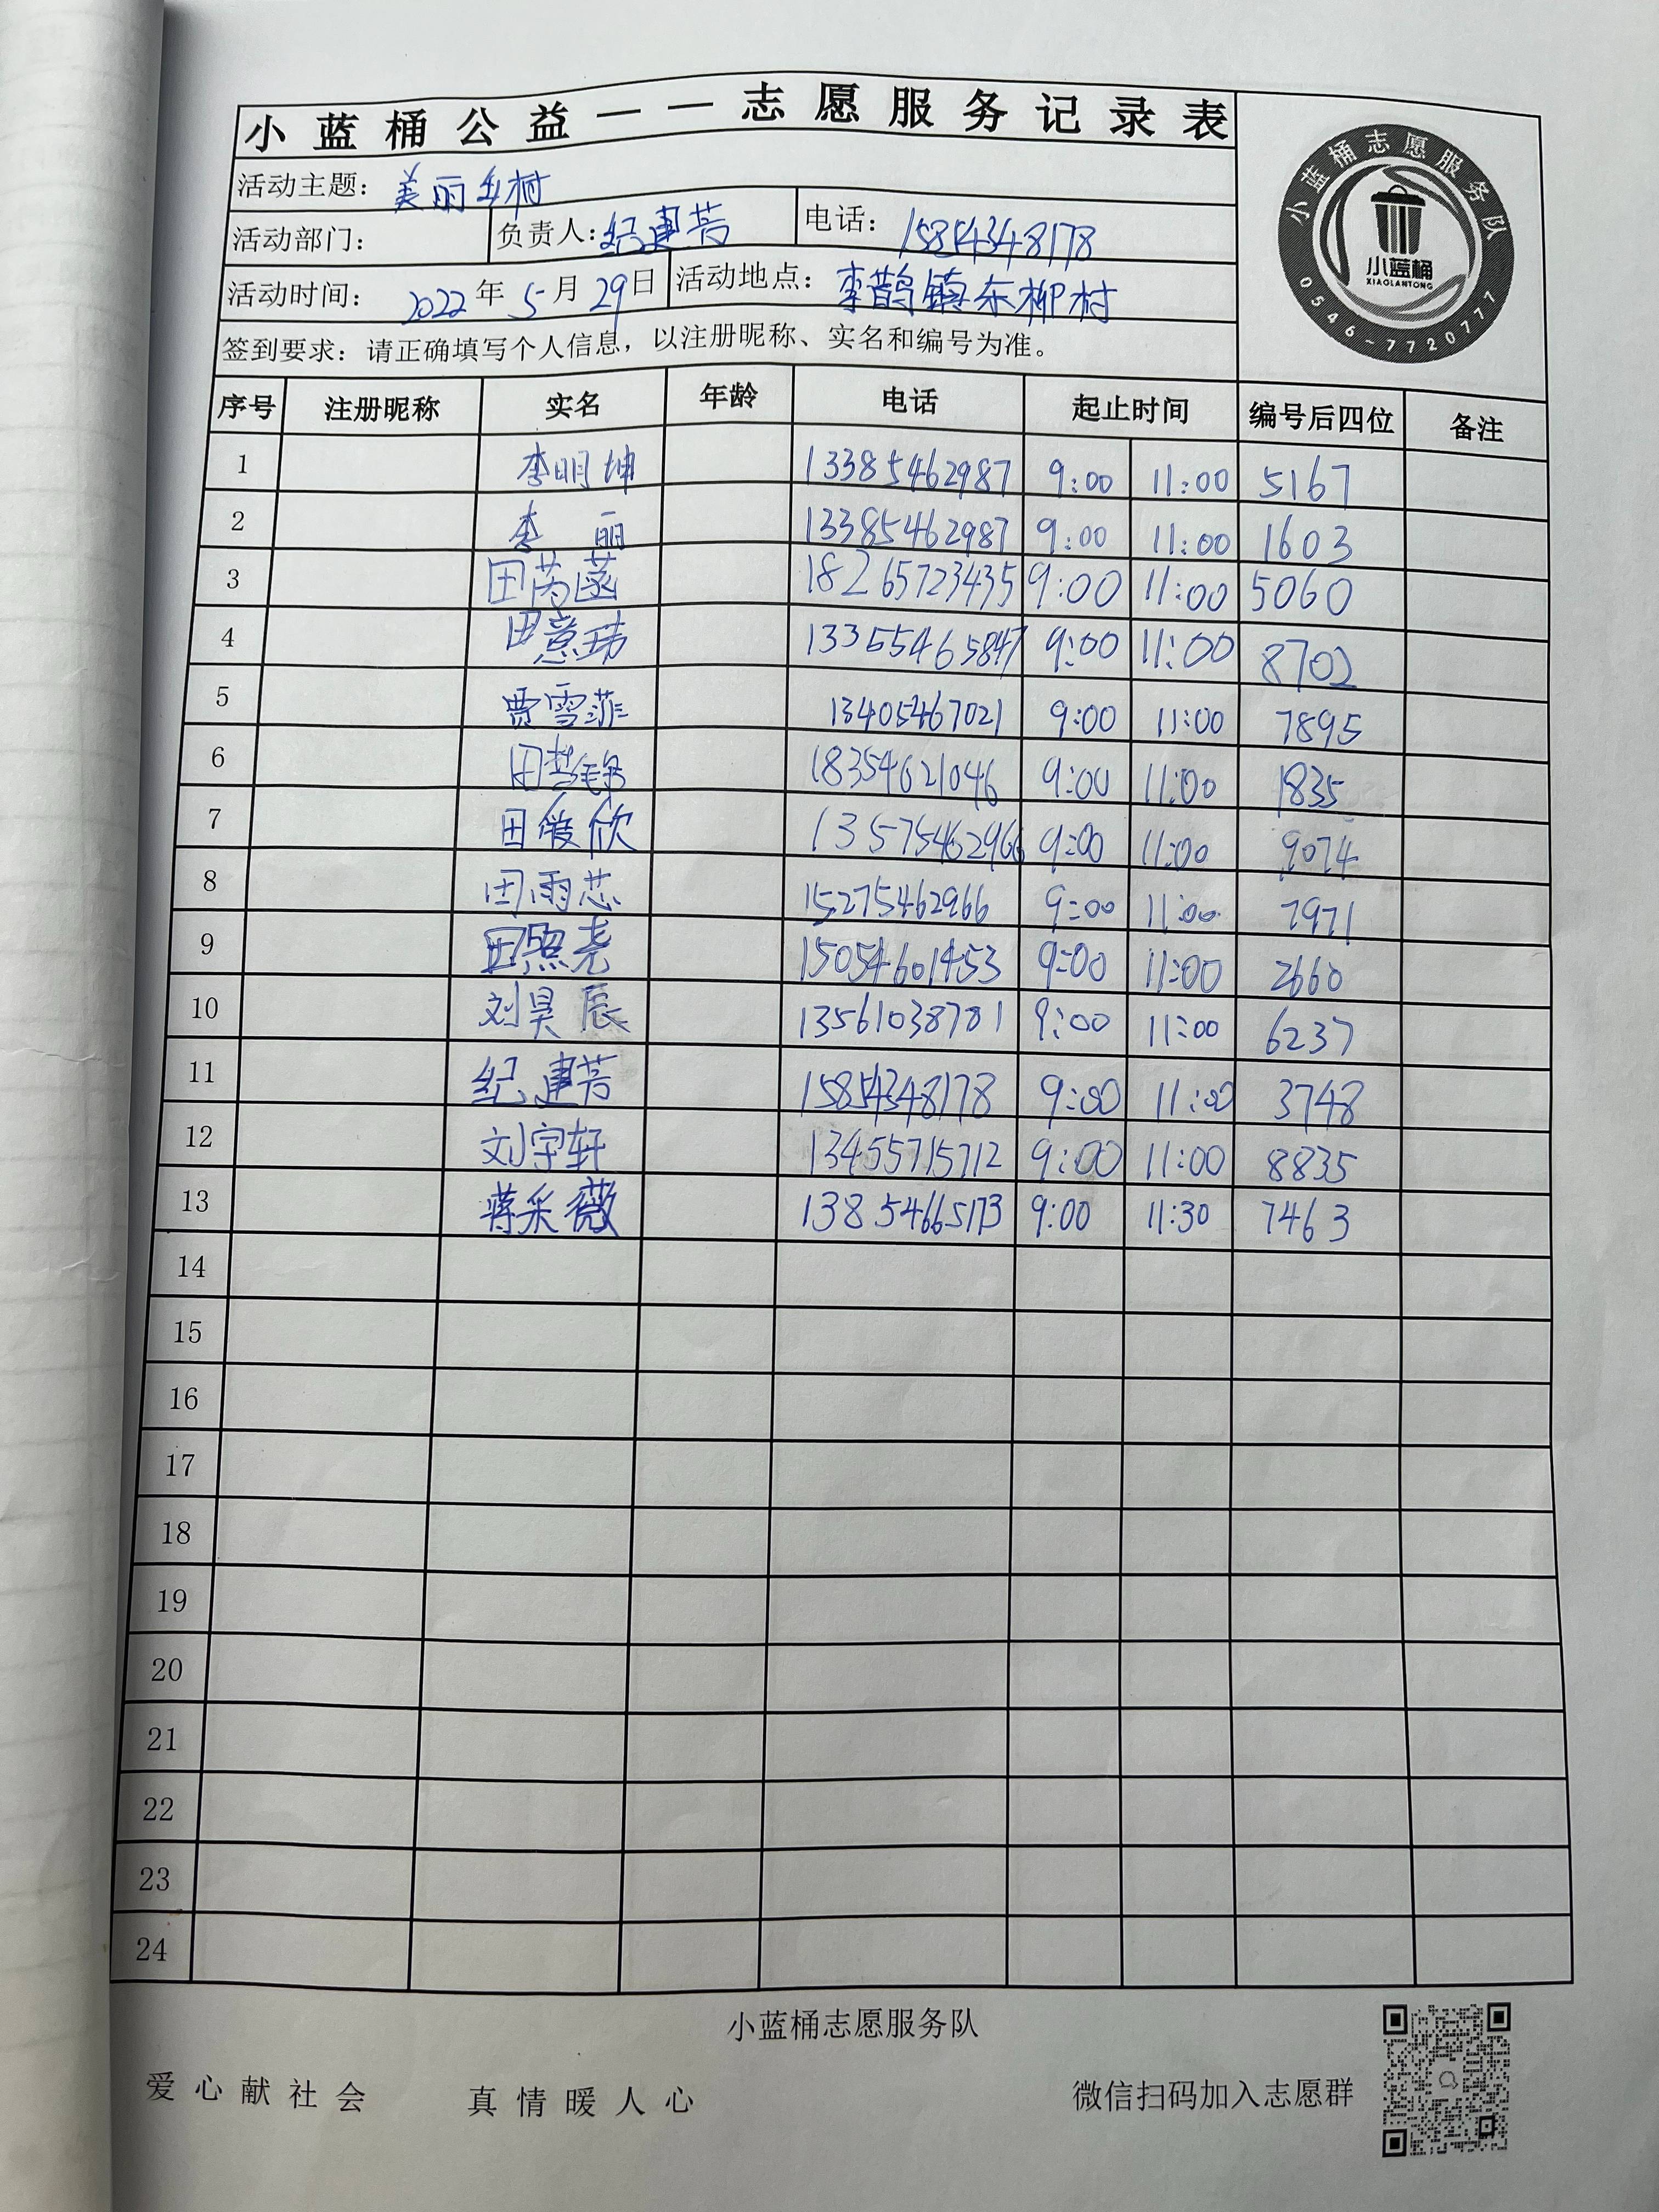 小蓝桶公益——志愿服务记录表
活动主题： 美丽乡村
活动部门： 负责人：纪建芳 电话： 15854348178
活动时间： 2022年5月29日 活动地点： 李鹊镇东柳村
签到要求：请正确填写个人信息，以注册昵称、实名和编号为准。
小蓝桶志愿服务队
小蓝桶
XIAOLANTONG
0546-7720777
序号 注册昵称 实名 年龄 电话 起止时间 编号后四位 备注
1 李明坤 13385462987 9:00 11:00 5167
2 李丽 13385462987 9:00 11:00 1603
3 田芮菡 18265723435 9:00 11:00 5060
4 田意玮 13355465847 9:00 11:00 8702
5 贾雪菲 13405467021 9:00 11:00 7895
6 田 18354621046 9:00 11:00 1835
7 田爱欣 13575462966 9:00 11:00 9074
8 田雨芯 15275462966 9:00 11:00 7971
9 田照尧 15054601453 9:00 11:00 2660
10 刘昊辰 13561038781 9:00 11:00 6237
11 纪建芳 15854348178 9:00 11:00 3748
12 刘宇轩 13455715712 9:00 11:00 8835
13 蒋采薇 13854665173 9:00 11:30 7463
14
15
16
17
18
19
20
21
22
23
24
小蓝桶志愿服务队
爱心献社会 真情暖人心 微信扫码加入志愿群